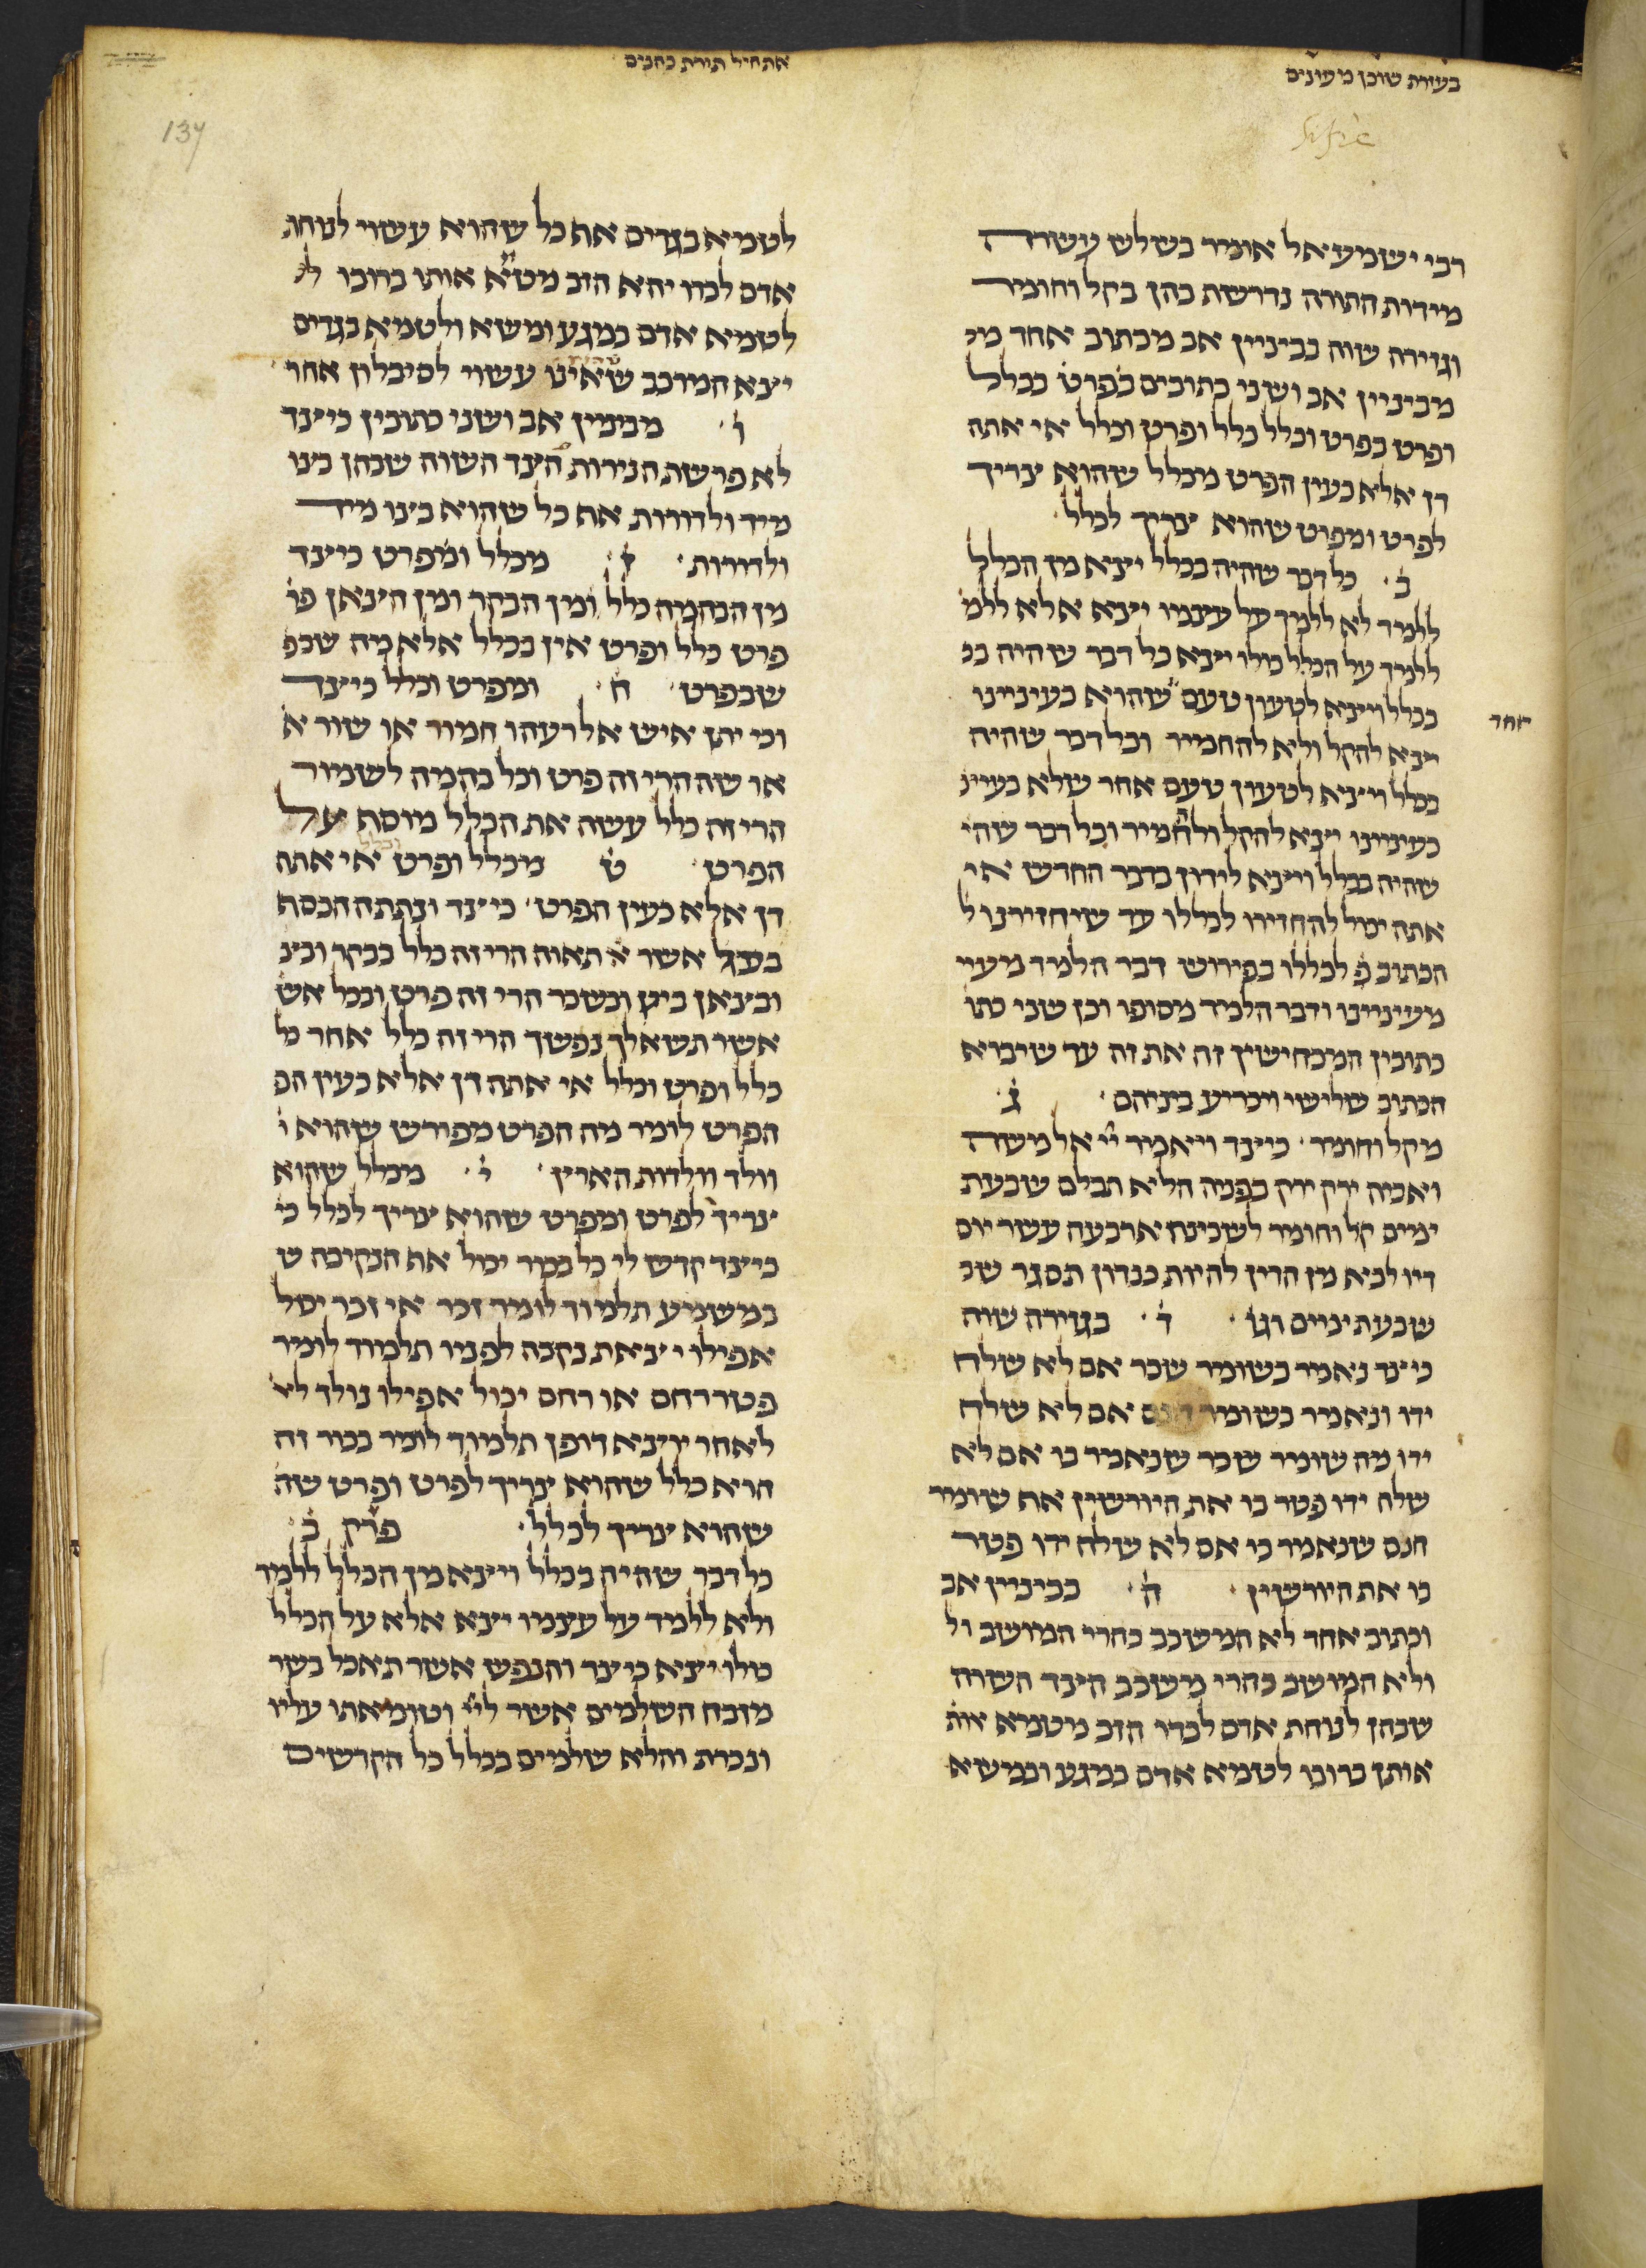 בעזרת שוכן מעונים
אתחיל תורת כהנים
Sifre
137
רבי ישמעאל אומר בשלש עשרה
מידות התורה נדרשת בהן בקל וחומר
וגזירה שוה בביניין אב מכתוב אחד מב
מביניין אב ושני כתובים בפרט בכלל
ופרט בפרט וכלל כלל ופרט וכלל אי אתה
דן אלא כעין הפרט מכלל שהוא צריך
לפרט ומפרט שהוא צריך לכלל
ב כל דבר שהיה בכלל ויצא מן הכלל
ללמד לא ללמד על עצמו יצא אלא ללמ
ללמד על הכלל כולו יצא כל דבר שהיה בכ
בכלל ויצא לטעון טעם שהוא כעיניינו
אחד
יצא להקל ולא להחמיר וכל דבר שהיה
בכלל ויצא לטעון טעם אחר שלא כעיינ
כעיניינו יצא להקל ולהחמיר וכל דבר שהי
שהיה בכלל ויצא לידון בדבר החדש אי
אתה יכול להחזירו לכללו עד שיחזירנו ל
הכתוב לכללו בפירוש דבר הלמד מעיי
מעיניינו ודבר הלמד מסופו וכן שני כתו
כתובין המכחישין זה את זה עד שיבוא
הכתוב שלישי ויכריע ביניהם ג
מקל וחומר כיצד ויאמר יי אל משה
ואביה ירק ירק בפניה הלא תכלם שבעת
ימים קל וחומר לשכינה ארבעה עשר יום
דיו לבא מן הדין להיות כנדון תסגר שב
שבעת ימים וגו ד בגזירה שוה
כיצד נאמר בשומר שכר אם לא שלח
ידו ונאמר בשומר חנם אם לא שלח
ידו מה שומר שכר שנאמר בו אם לא
שלח ידו פטר בו את היורשין אף שומר
חנם שנאמר בו אם לא שלח ידו פטר
בו את היורשין ה בביניין אב
וכתוב אחד לא המשכב כהרי המושב ול
ולא המושב כהרי משכב הצד השוה
שבהן לנוחת אדם לבדו הזב מטמא אות
אותן ברובו לטמא אדם במגע ובמשא
לטמא בגדים אף כל שהוא עשוי לנוחת
אדם לבדו יהא הזב מטמא אותו ברובו ל
לטמא אדם במגע ומשא ולטמא בגדים
יצא המרכב שאינו עשוי לסיבלון אחר
ו מבניין אב ושני כתובין כיצד
לא פרשת הנירות הצד השוה שבהן בינו
מיד ולדורות אף כל שהוא בינו מיד
ולדורות ז מכלל ומפרט כיצד
מן הבהמה כלל ומן הבקר ומן הצאן פר
פרט כלל ופרט אין בכלל אלא מה שבפ
שבפרט ח ומפרט וכלל כיצד
וכי יתן איש אל רעהו חמור או שור א
או שה הרי זה פרט וכל בהמה לשמור
הרי זה כלל עשה את הכלל מוסף על
הפרט ט מכלל ופרט וכלל אי אתה
דן אלא כעין הפרט כיצד ונתתה הכסף
בכל אשר תאוה הרי זה כלל בבקר ובצ
ובצאן ביין ובשכר הרי זה פרט ובכל אש
אשר תשאלך נפשך הרי זה כלל אחר כל
כלל ופרט וכלל אי אתה דן אלא כעין הפ
הפרט לומר מה הפרט מפורש שהוא ו
וולד וולדות הארץ י מכלל שהוא
צריך לפרט ומפרט שהוא צריך לכלל כי
כיצד קדש לי כל בכור יכול אף הנקיבה ש
במשמע תלמוד לומר זכר אי זכר יכול
אפילו יצאת נקבה לפניו תלמוד לומר
פטר רחם או רחם יכול אפילו נולד לא
לאחר יוצא דופן תלמוד לומר בכור זה
הוא כלל שהוא צריך לפרט ופרט שה
שהוא צריך לכלל פרק ב
כל דבר שהיה בכלל ויצא מן הכלל ללמד
ולא ללמד על עצמו יצא אלא על הכלל
כולו יצא כיצד והנפש אשר תאכל בשר
מזבח השלמים אשר ליי וטומאתו עליו
ונכרת והלא שלמים בכלל כל הקדשים